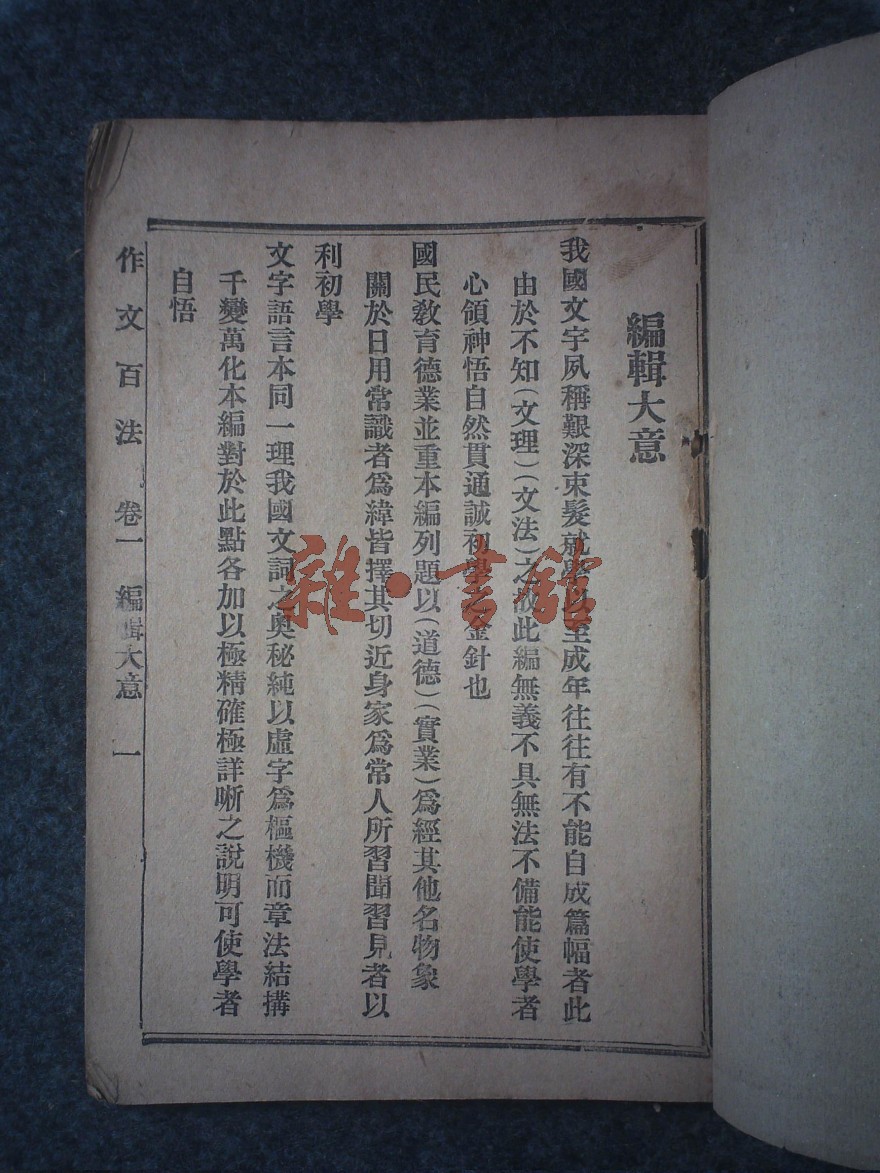 編輯大意
我國文字夙稱艱深束髮就學以至成年往往有不能自成篇幅者此
由於不知(文理)(文法)之故此編無義不具無法不備能使學者
心領神悟自然貫通誠初學之金針也
國民敎育德業並重本編列題以(道德)(實業)爲經其他名物象
關於日用常識者爲緯皆擇其切近身家爲常人所習聞習見者以
利初學
文字語言本同一理我國文詞之奧秘純以虛字爲樞機而章法結搆
千變萬化本編對於此點各加以極精確極詳晰之說明可使學者
自悟
作文百法 卷一 編輯大意 一
雜·書館